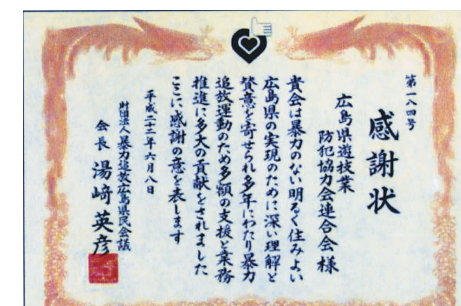 第一八四号
感謝状
広島県遊技業
防犯協力会連合会様
貴会は暴力のない明るく住みよい
広島県の実現のために深い理解と
賛意を寄せられ多年にわたり暴力
追放運動のため多額の支援と業務
推進に多大の貢献をされました
ここに感謝の意を表します
平成二十二年六月八日
財団法人暴力追放広島県民会議
会長 湯﨑英彦